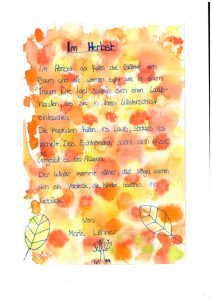 Im Herbst
Im Herbst da fallen die Blätter vom
Baum und sie werden bunt wie in einem
Traum. Die Igel suchen sich einen Laub-
haufen, um sie in ihren Winterschlaf
eintauchen.
Die Kastanien fallen ins Laub, sodass es
raschelt. Das Eichhörnchen sucht sich
Der Winter kommt näher, die Vögel suchen
sich ein Versteck, die Kinder naschen
Gebäck.
Von
Marie Lehner